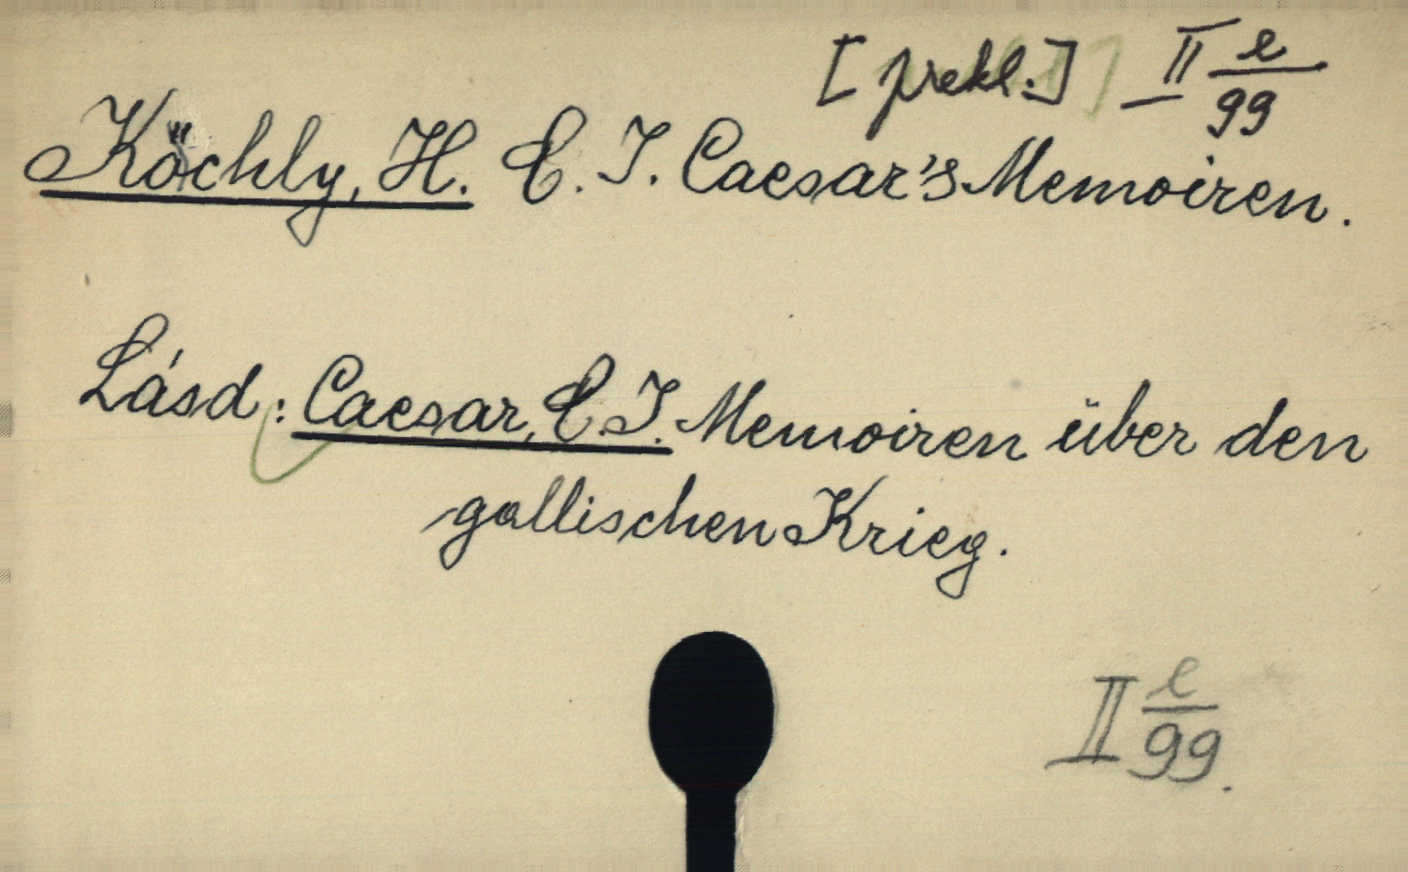 [prekl.] II e/99
Köchly, H. C. I. Caesar's Memoiren.
Lásd: Caesar, C. I. Memoiren über den
gallischen Krieg.
II e/99.